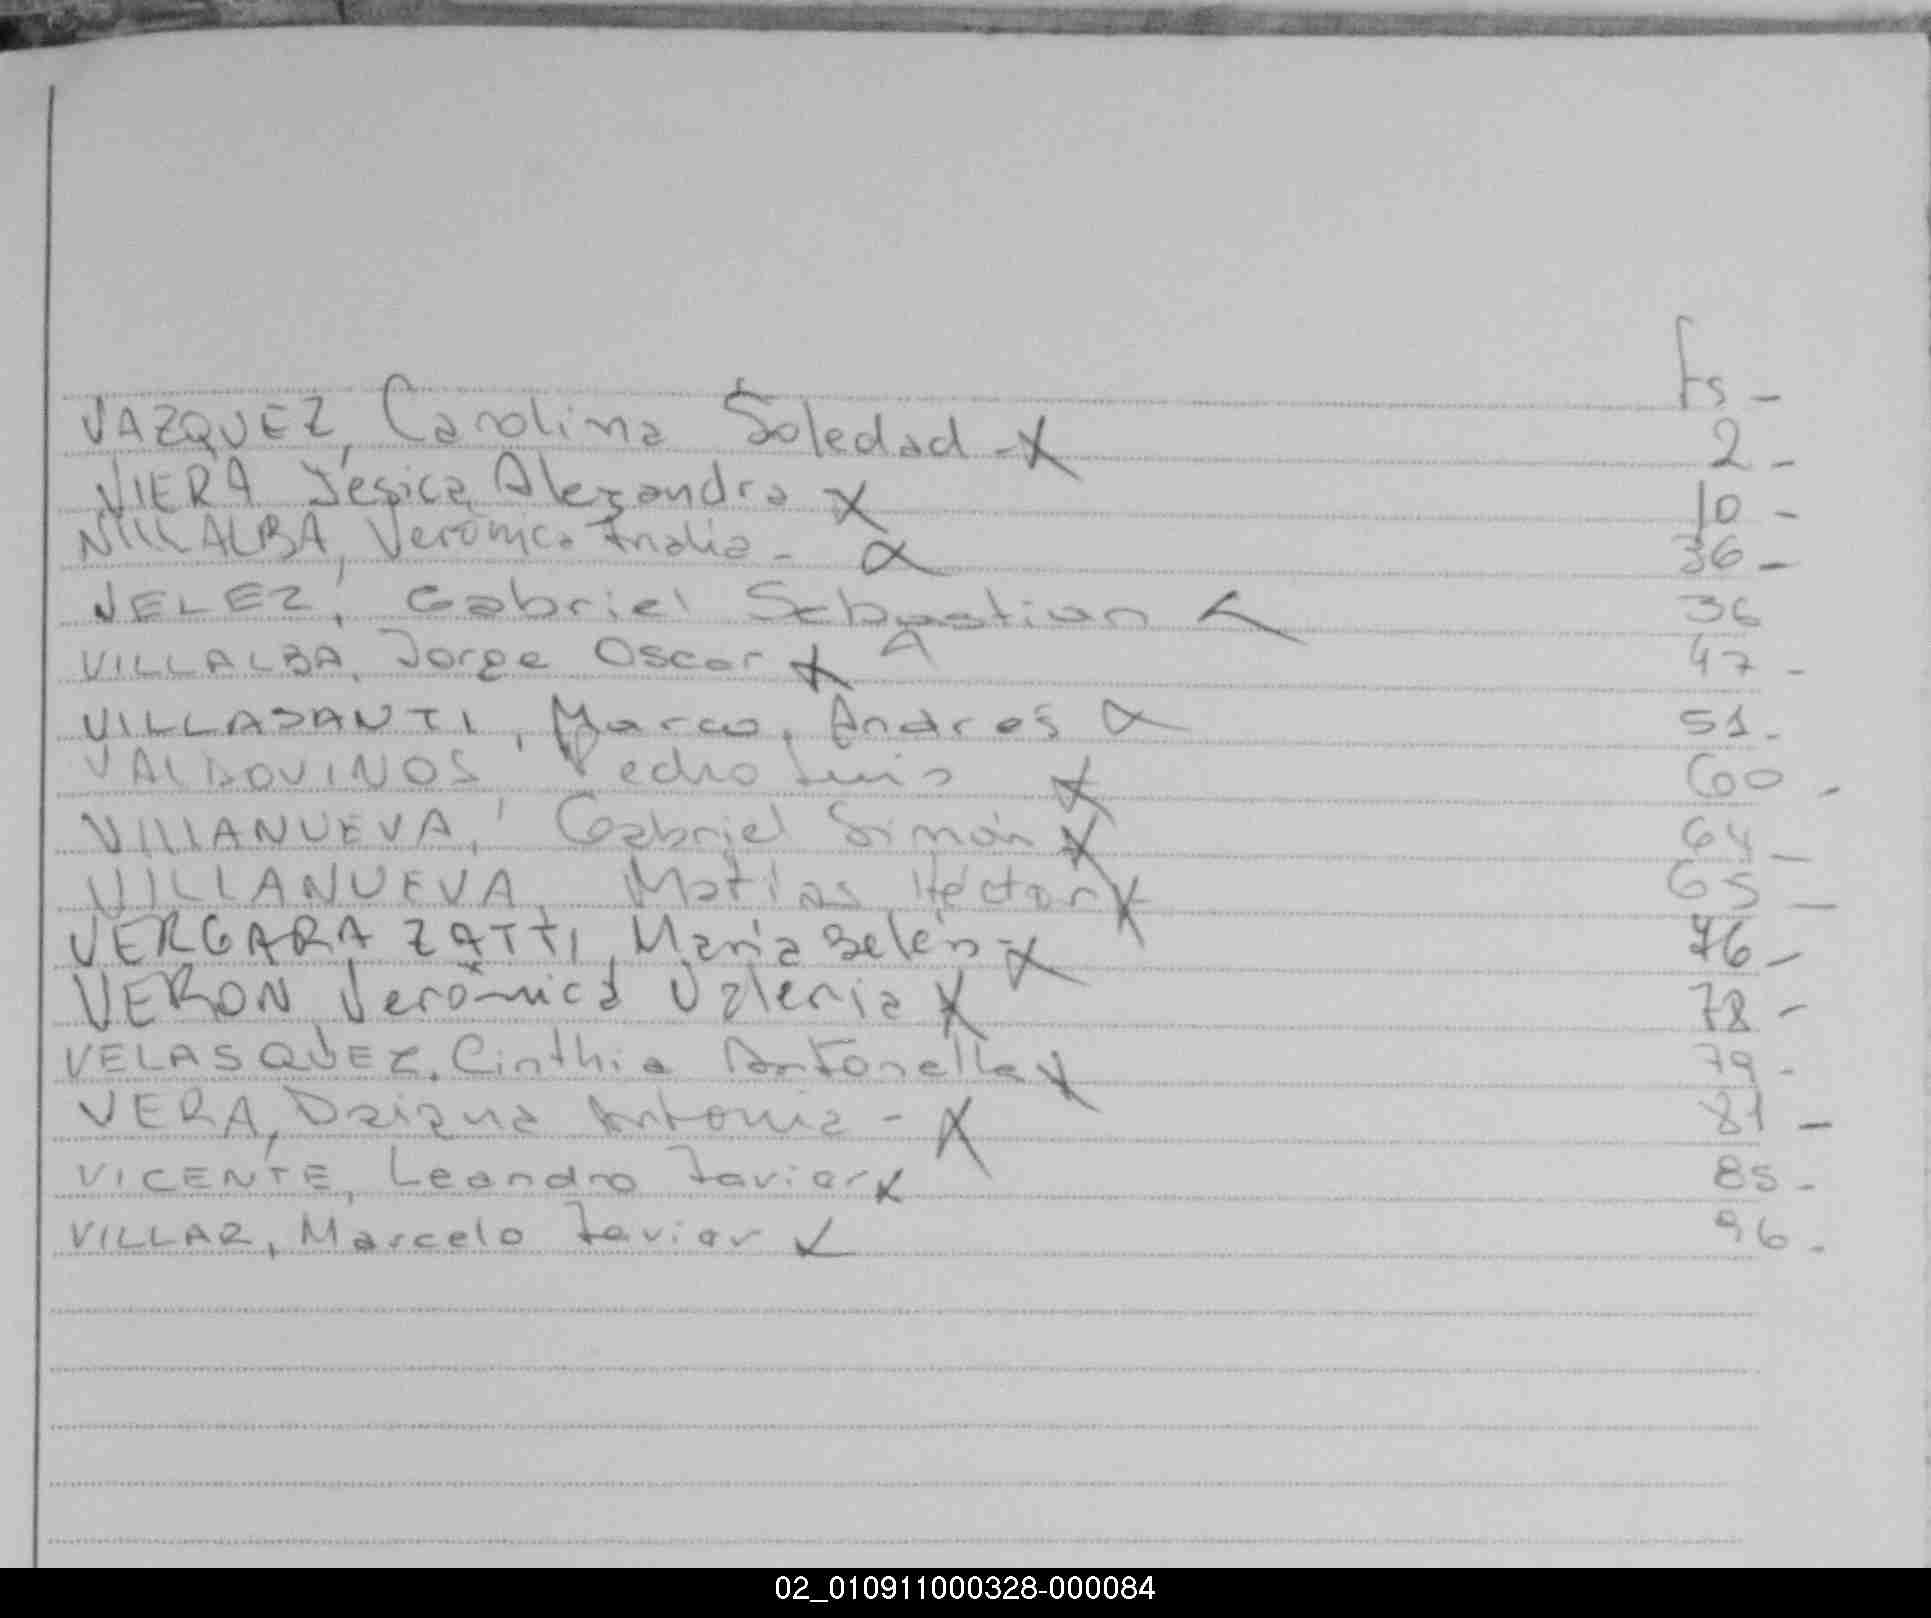 fs -
VAZQUEZ, Carolina Soledad - X 2 -
VIERA Jésica Alexandra X 10 -
VILLALBA, Verónica Analia - X 36 -
VELEZ, Gabriel Sebastian 36
VILLALBA, Jorge Oscar X 47 -
VILLASANTI, Marco, Andres X 51 -
VALDOVINOS Pedro Luis X 60 -
VILLANUEVA, Gabriel Simón X 64 -
VILLANUEVA, Matías Héctor X 65 -
VERGARA ZATTI, María Belén - X 76 -
VERON Verónica Valeria X 78 -
VELASQUEZ, Cinthia Antonella X 79 -
VERA, Daiana Antonia - X 81 -
VICENTE, Leandro Javier X 85 -
VILLAR, Marcelo Javier 96 -
02_010911000328-000084